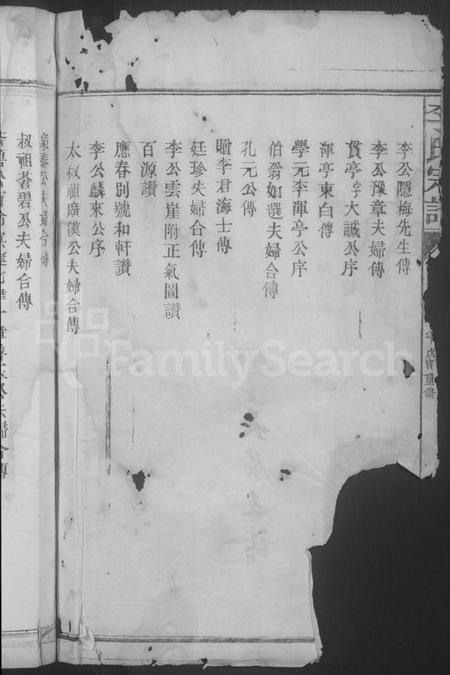 李氏宗譜
戊寅重修
李公隱梅先生傳
李公豫章夫婦傳
貫亭李大誠公序
渾亭東白傳
學元李渾亭公序
伯翁如選夫婦合傳
孔元公傳
贈李君海士傳
廷珍夫婦合傳
李公雲崖附正氣圖讚
百源讚
應春別號和軒讚
李公麟來公序
太叔祖廣漢公夫婦合傳
公夫婦合傳
叔祖蒼碧公夫婦合傳
FamilySearch